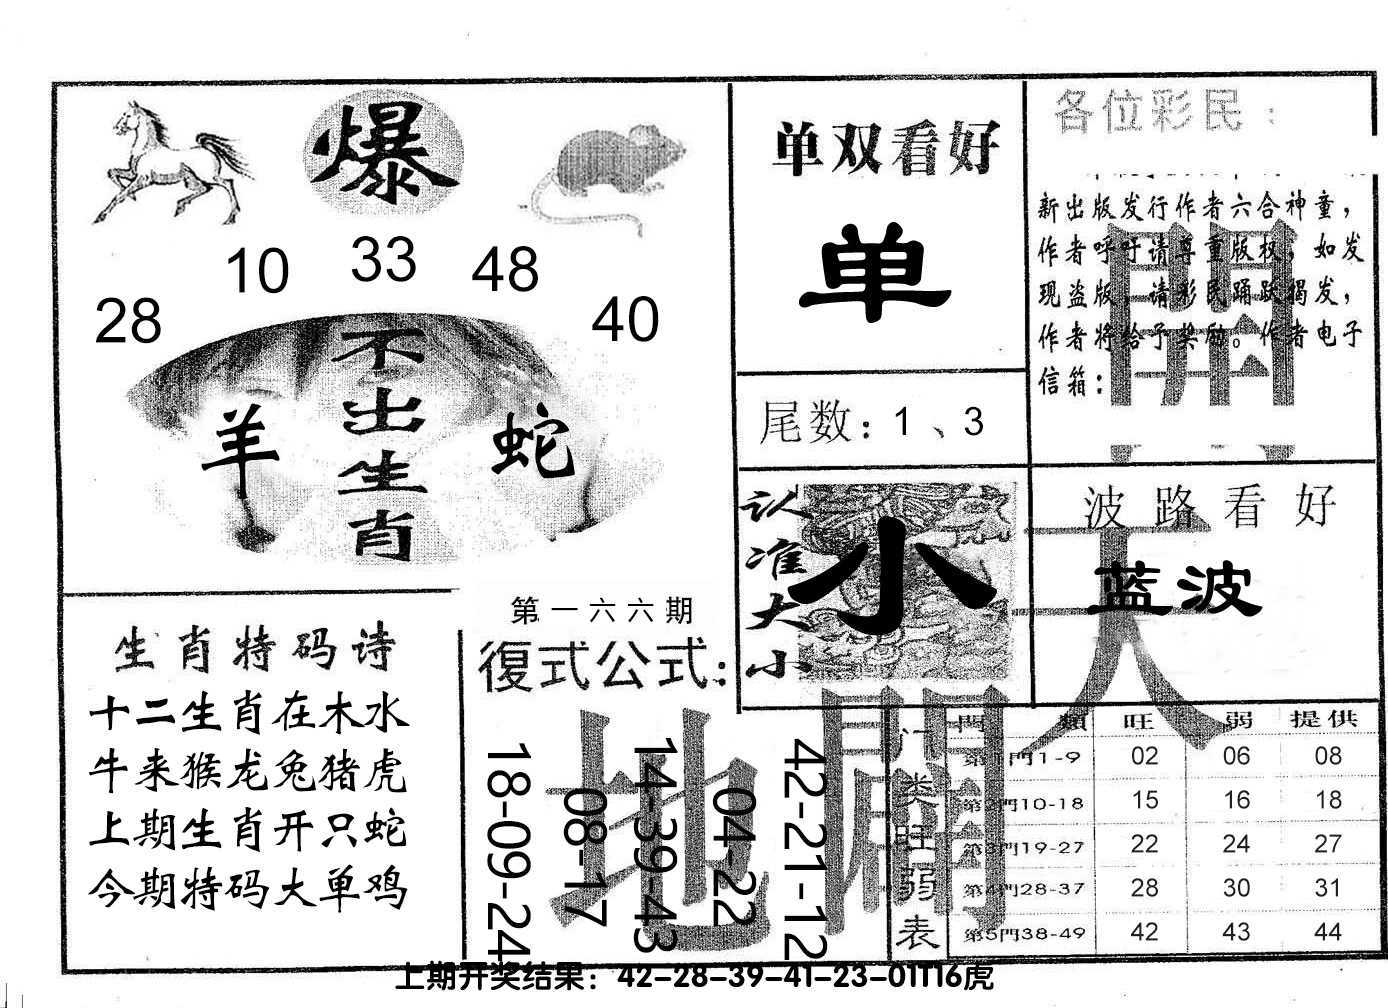 爆
10 33 48
28 40
不出生肖
羊 蛇
单双看好
单
尾数：1、3
各位彩民：
新出版发行作者六合神童，
作者呼吁请尊重版权，如发
现盗版，请彩民踊跃揭发，
作者将给予奖励。作者电子
信箱：
認准大小
小
波路看好
蓝波
天
開
地
闢
生肖特码诗
十二生肖在木水
牛来猴龙兔猪虎
上期生肖开只蛇
今期特码大单鸡
第一六六期
復式公式：
18-09-24
08-17
14-39-43
04-22
42-21-12
门类旺弱表
門類 旺 弱 提供
第1門1-9 02 06 08
第2門10-18 15 16 18
第3門19-27 22 24 27
第4門28-37 28 30 31
第5門38-49 42 43 44
上期开奖结果：42-28-39-41-23-01T16虎